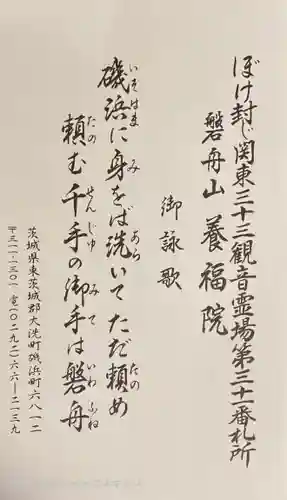 ぼけ封じ関東三十三観音霊場第三十一番札所
磐舟山養福院
御詠歌
磯浜に身をば洗いてただ頼め
いそはま み あら たの
頼む千手の御手は磐舟
たの せんじゅ みて いわふね
茨城県東茨城郡大洗町磯浜町六八一二
〒三一一-一三〇一 電(〇二九二)六六-二一三九